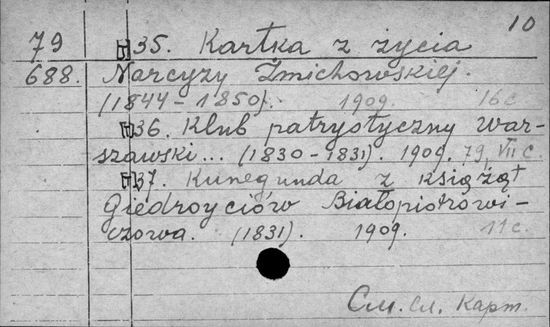 10
79 35. Kartka z życia
688. Narcyzy Żmichowskiej.
(1844-1850). 1909. 16 c
36. Klub patrystyczny War-
szawski... (1830-1831). 1909. 79, VII c.
37. Kunegunda z książąt
Giedroyciów Białopiotrowi-
czowa. (1831). 1909. 11 c.
См. сл. карт.